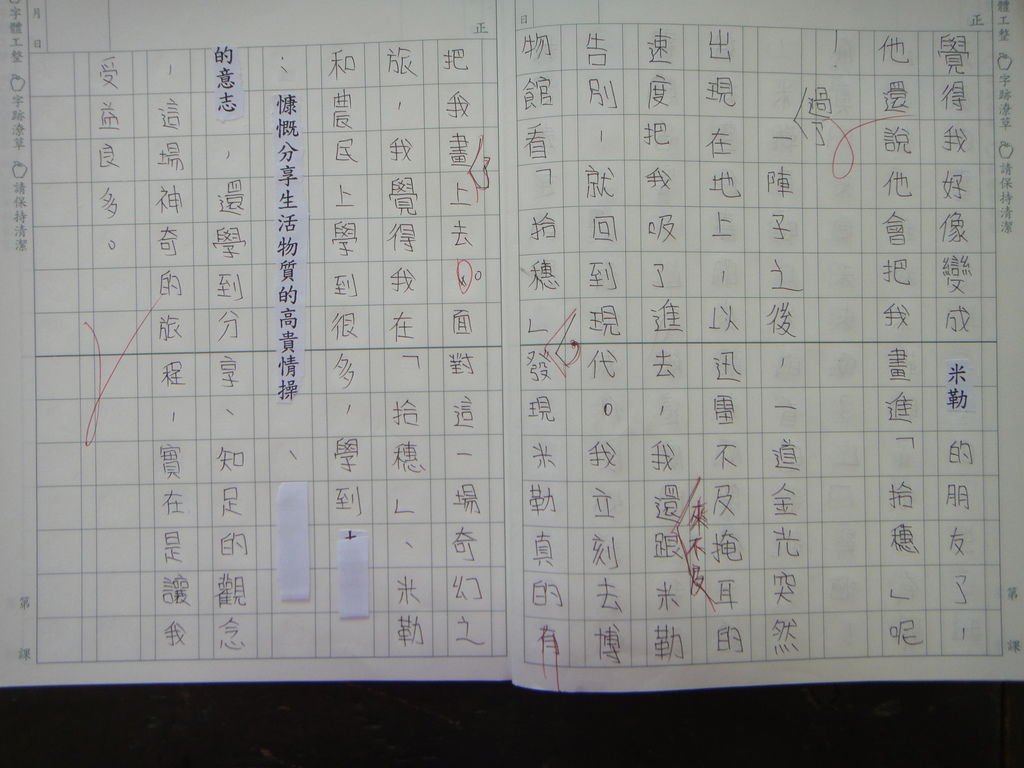 覺得我好像變成米勒的朋友了，
他還說他會把我畫進「拾穗」呢
！
過了
一陣子之後，一道金光突然
出現在地上，以迅雷不及掩耳的
速度把我吸了進去，我還跟米勒
來不及
告別，就回到現代。我立刻去博
物館看「拾穗」發現米勒真的有
把我畫上去。面對這一場奇幻之
旅，我覺得我在「拾穗」、米勒
和農民上學到很多，學到
、慷慨分享生活物質的高貴情操、
的意志，還學到分享、知足的觀念
，這場神奇的旅程，實在是讓我
受益良多。
正
日
體工整
字跡潦草
請保持清潔
第
課
正
月
日
字體工整
字跡潦草
請保持清潔
第
課